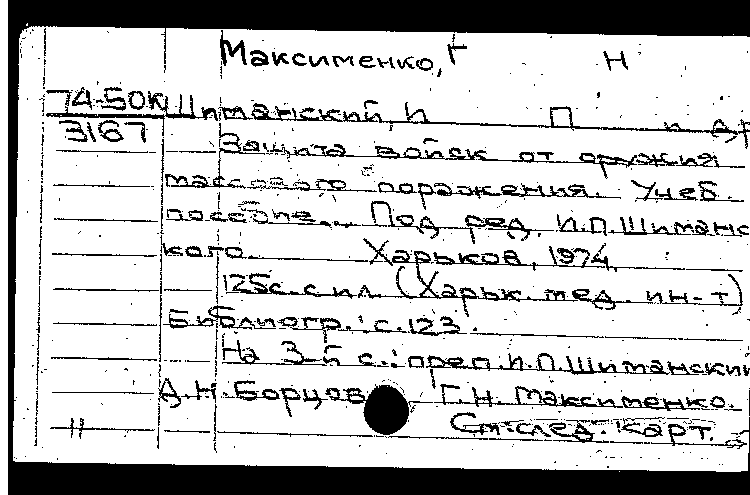 Максименко, Г Н
74-50К Шиманский, И П и др
3167
Защита войск от оружия
массового поражения. Учеб.
пособие... Под ред. И.П.Шиманс
кого. Харьков, 1974.
125с. с ил. (Харьк. мед. ин-т)
Библиогр.: с.123.
На 3-й с.: преп. И.П.Шиманский
А.Н. Борцов Г.Н. Максименко.
11 См. след. карт.